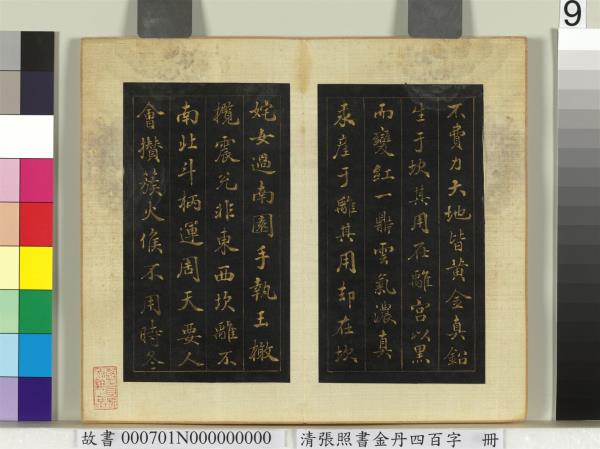 不費力大地皆黃金真鉛
生于坎其用在離宮以黑
而變紅一鼎雲氣濃真
汞產于離其用却在坎
姹女過南園手執玉橄
欖震兌非東西坎離不
南北斗柄運周天要人
會攢蔟火候不用時冬
9
故書 000701N000000000 清張照書金丹四百字 冊